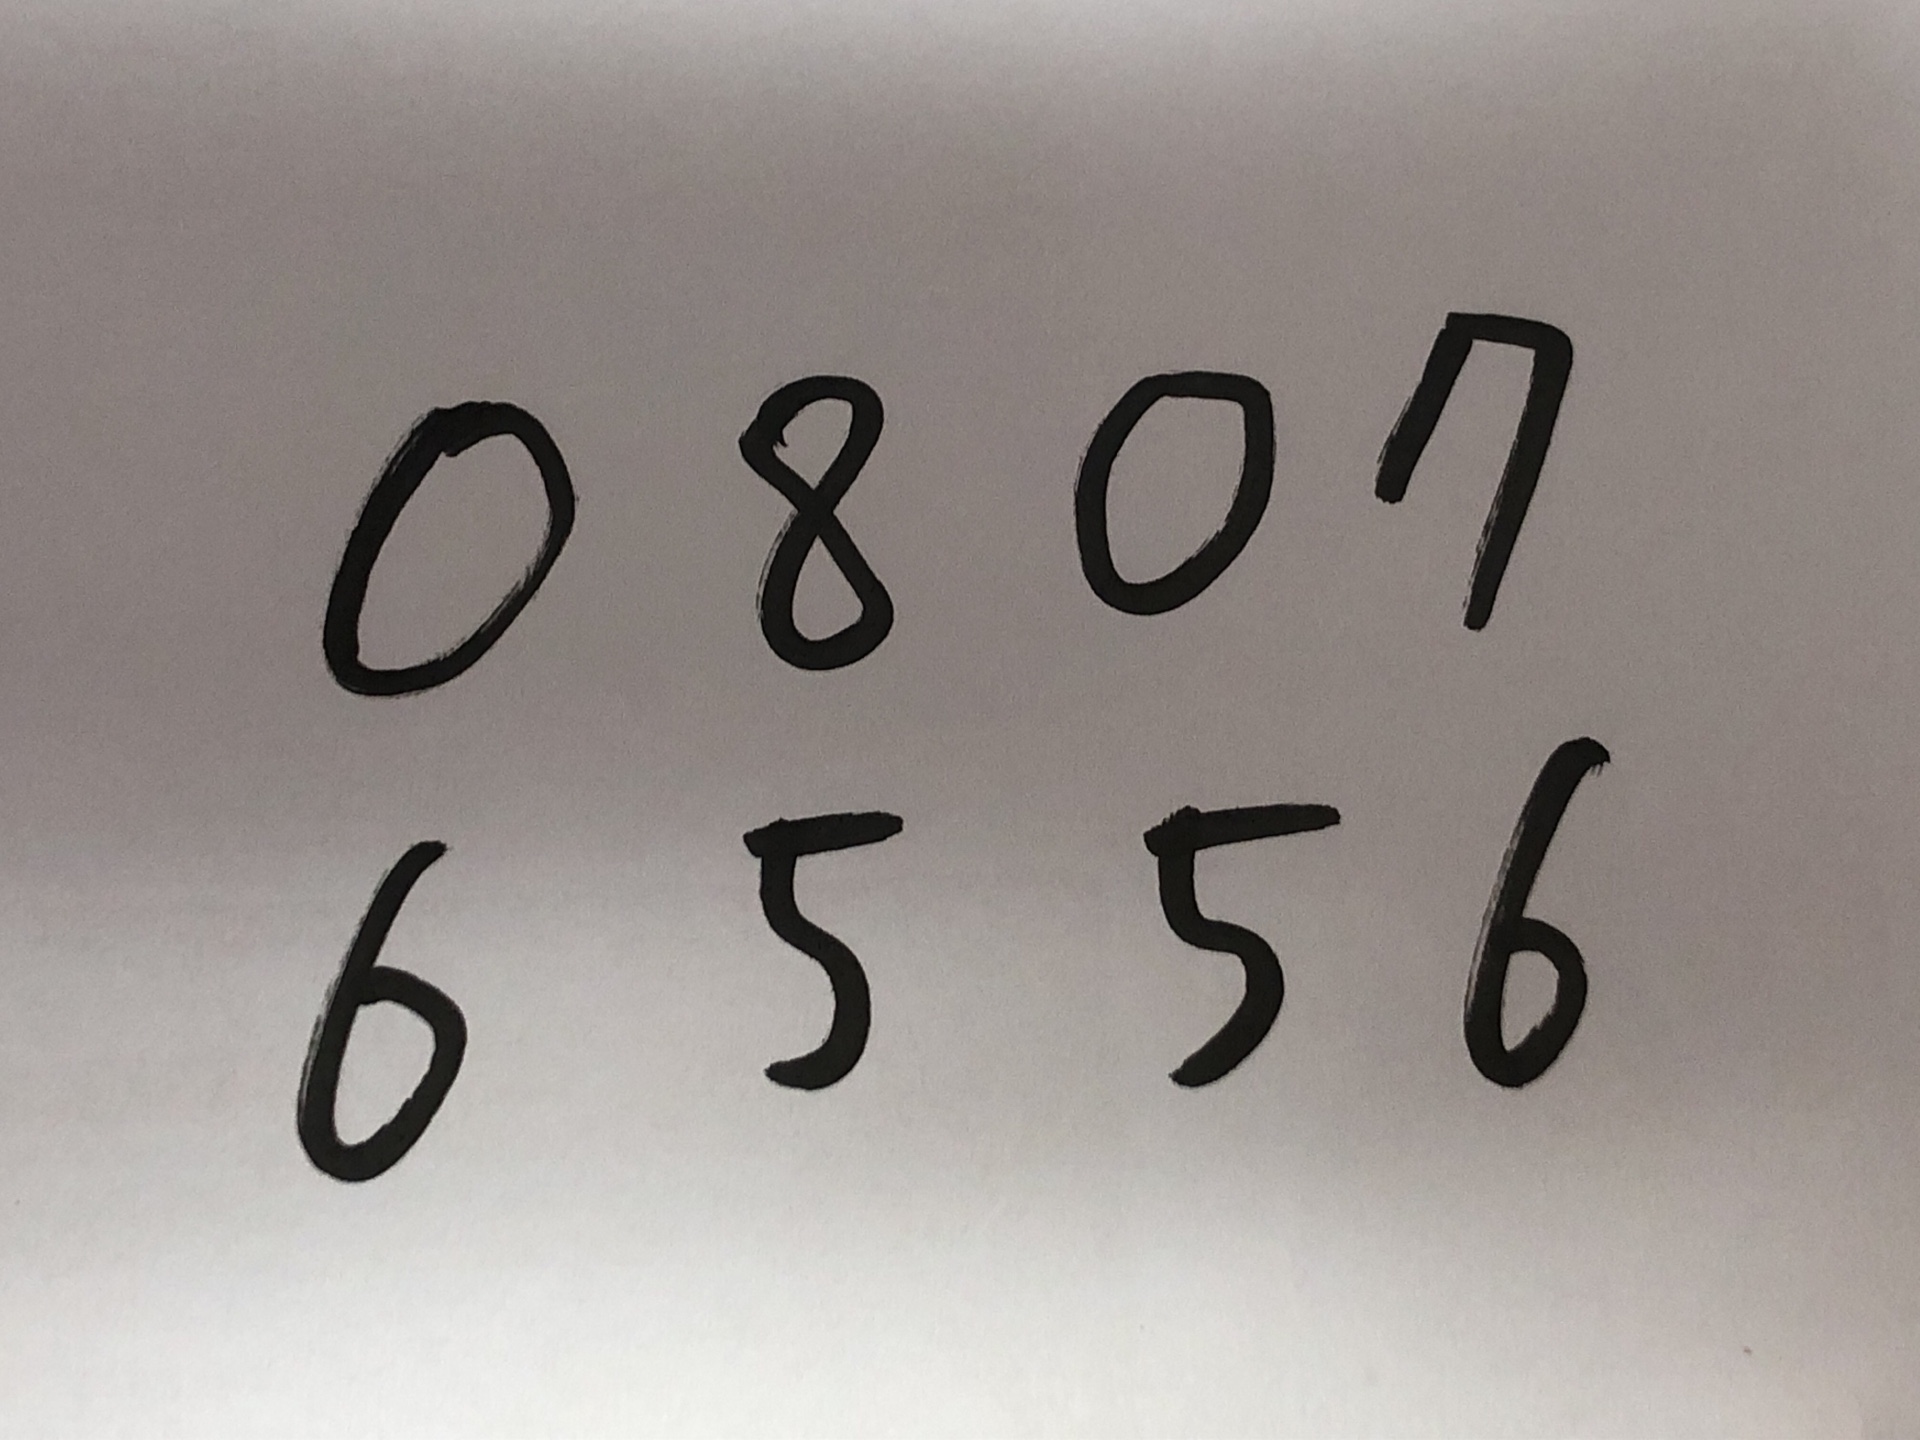 0 8 0 7
6 5 5 6